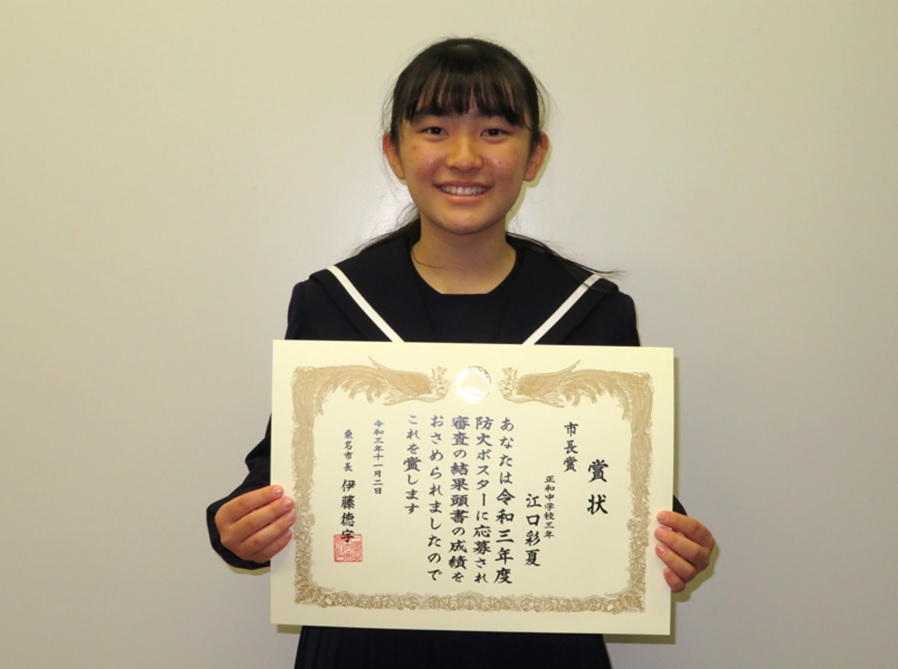 賞状
市長賞
正和中学校三年
江口彩夏
あなたは令和三年度
防火ポスターに応募され
審査の結果頭書の成績を
おさめられましたので
これを賞します
令和三年十一月二日
桑名市長 伊藤徳宇